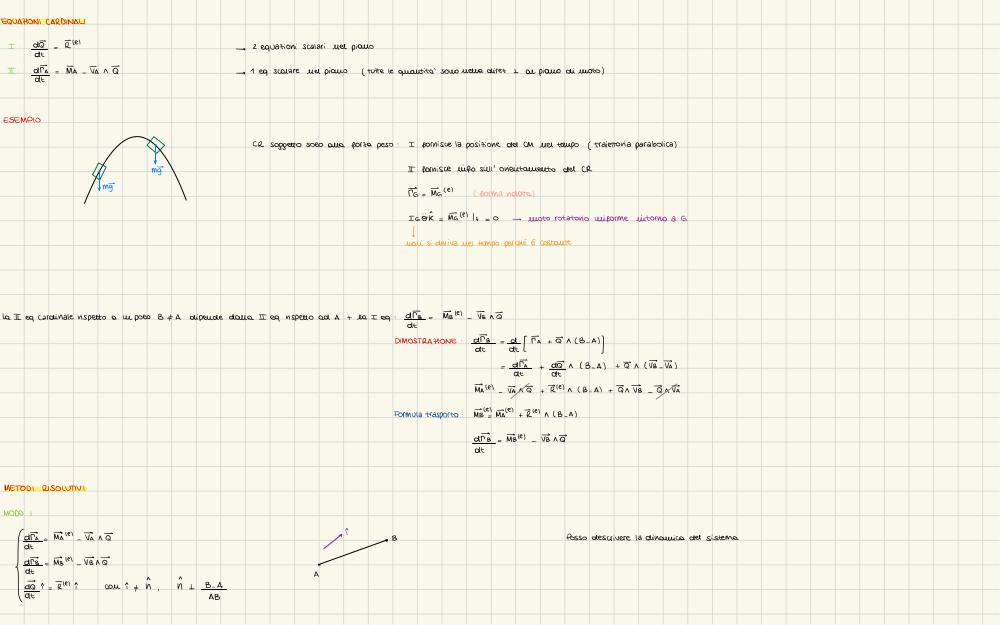 EQUAZIONI CARDINALI
I dQ/dt = R^(e) → 2 equazioni scalari nel piano
II dΓA/dt = MA - VA ∧ Q → 1 eq scalare nel piano (tutte le quantita' sono nella diret ⊥ al piano di moto)
ESEMPIO
CR soggetto solo alla forza peso: I fornisce la posizione del CM nel tempo (traiettoria parabolica)
mg
II fornisce info sull'orientamento del CR
mg
Γ̇G = MG^(e) (forma ridotta)
IG θ̈ k̂ = MG^(e)|t = 0 → moto rotatorio uniforme intorno a G
non si deriva nel tempo perché è costante
la II eq cardinale rispetto a un polo B ≠ A dipende dalla II eq rispetto ad A + la I eq: dΓB/dt = MB^(e) - VB ∧ Q
DIMOSTRAZIONE: dΓB/dt = d/dt [ΓA + Q ∧ (B-A)]
= dΓA/dt + dQ/dt ∧ (B-A) + Q ∧ (VB - VA)
MA^(e) - VA ∧ Q + R^(e) ∧ (B-A) + Q ∧ VB - Q ∧ VA
Formula trasporto: MB^(e) = MA^(e) + R^(e) ∧ (B-A)
dΓB/dt = MB^(e) - VB ∧ Q
METODI RISOLUTIVI
MODO 1
dΓA/dt = MA^(e) - VA ∧ Q
Posso descrivere la dinamica del sistema
B
dΓB/dt = MB^(e) - VB ∧ Q
A
dQ/dt · î = R^(e) · î con î ≠ n̂, n̂ ⊥ B-A/AB